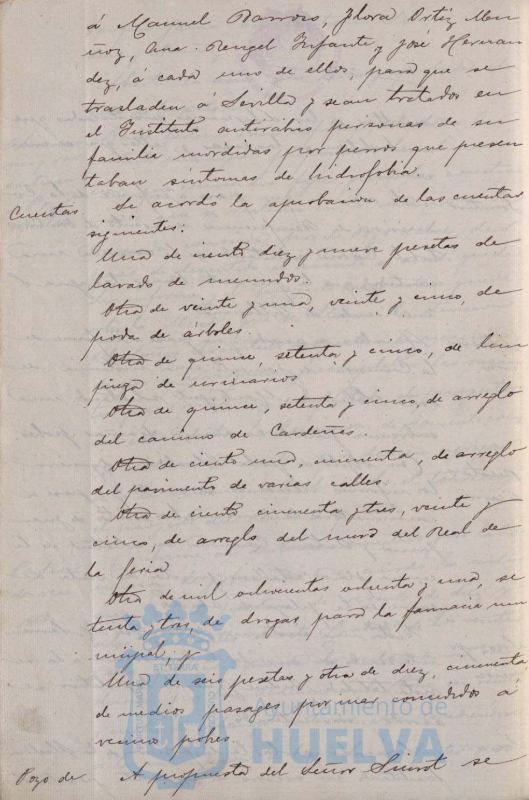 á Manuel Barroso, Flora Ortíz Mu
ñoz, Ana Rengel Infante y José Hernan
dez, á cada uno de ellos, para que se
trasladen á Sevilla y sean tratados en
el Instituto antirabio personas de su
familia mordidas por perros que presen
taban sintomas de hidrofobia.
Cuentas. Se acordó la aprobacion de las cuentas
siguientes:
Una de ciento diez y nueve pesetas de
lavado de menudos.
Otra de veinte y una, veinte y cinco, de
poda de árboles.
Otra de quince, setenta y cinco, de lim
pieza de urinarios
Otra de quince, setenta y cinco, de arreglo
del camino de Cardeñas.
Otra de ciento una, cincuenta, de arreglo
del pavimento de varias calles.
Otra de ciento cincuenta y tres, veinte y
cinco, de arreglo del muro del Real de
la feria
Otra de mil ochocientas ochenta y una, se
tenta y tres, de drogas para la farmacia mu
nicipal, y
Una de seis pesetas y otra de diez, cincuenta
de medios pasages por mar concedidos á
vecino pobres.
Pozo de A propuesta del Señor Siurot se
Ayuntamiento de
HUELVA